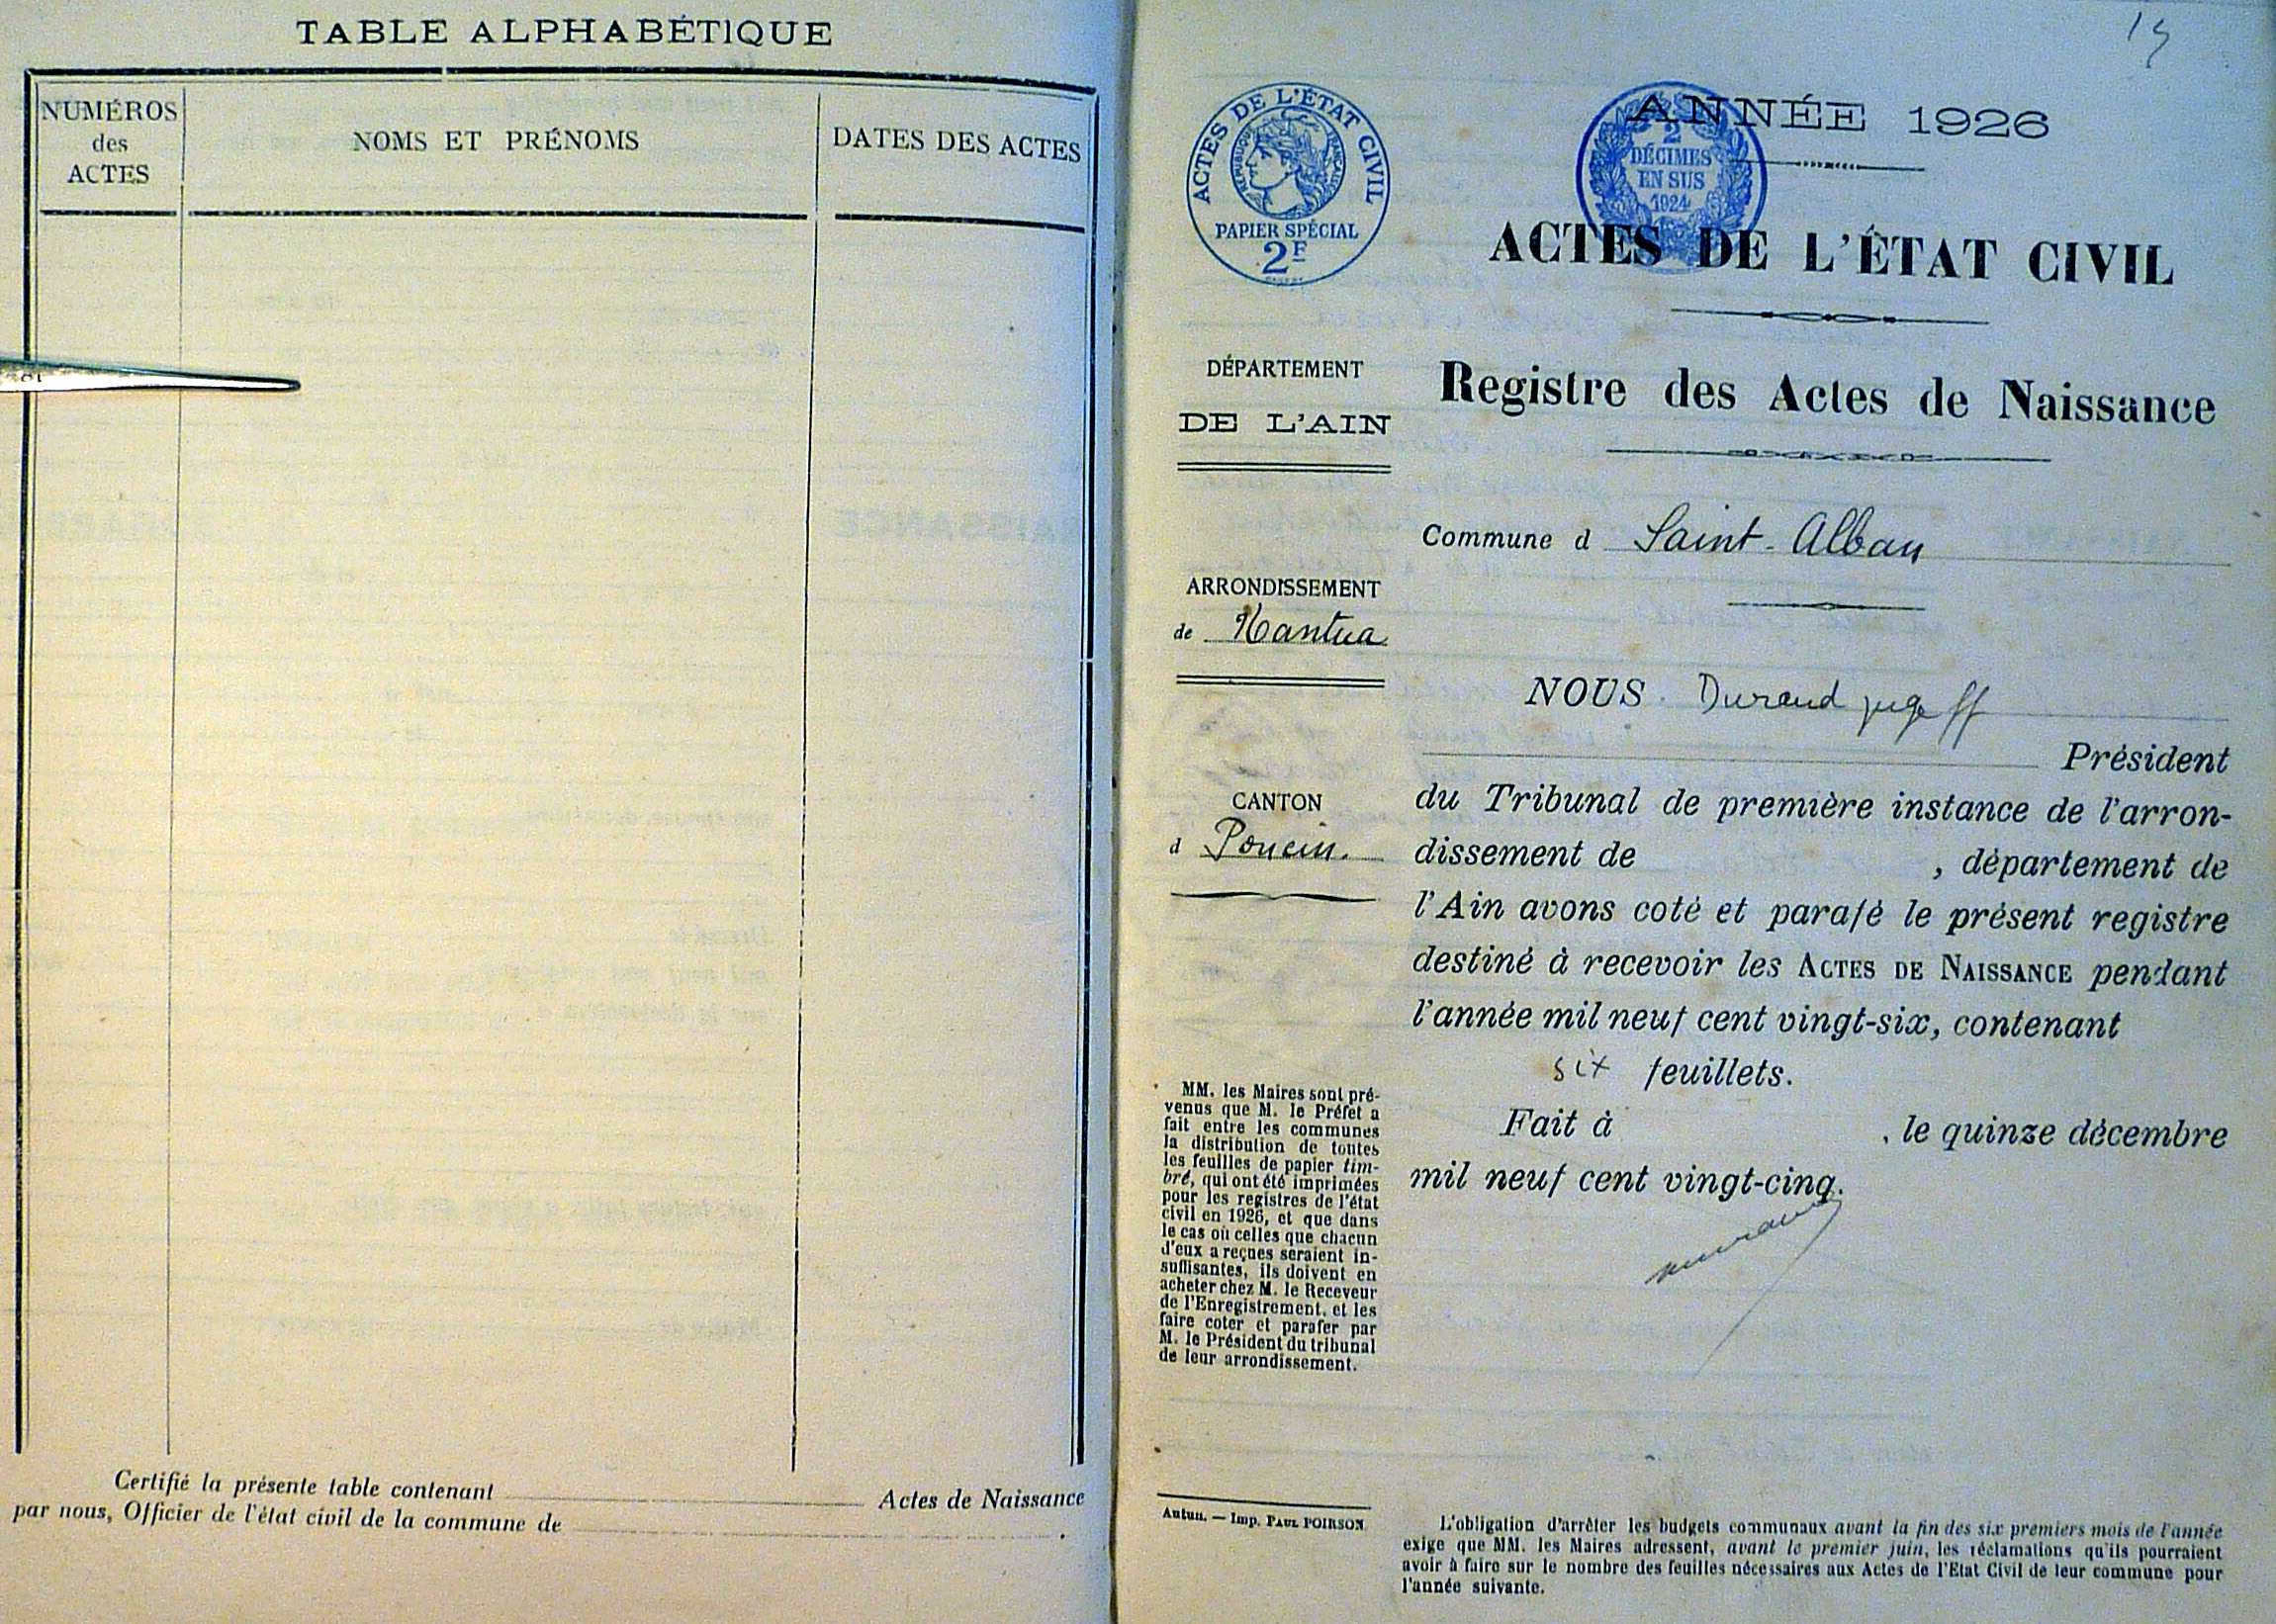 TABLE ALPHABÉTIQUE
NUMÉROS
des
ACTES
NOMS ET PRÉNOMS
DATES DES ACTES
Certifié la présente table contenant Actes de Naissance
par nous, Officier de l'état civil de la commune de
ACTES DE L'ÉTAT CIVIL
RÉPUBLIQUE FRANÇAISE
PAPIER SPÉCIAL
2F
2
DÉCIMES
EN SUS
1924
ANNÉE 1926
ACTES DE L'ÉTAT CIVIL
DÉPARTEMENT
DE L'AIN
ARRONDISSEMENT
de Nantua
CANTON
d Poncin.
MM. les Maires sont pré-
venus que M. le Préfet a
fait entre les communes
la distribution de toutes
les feuilles de papier tim-
bré, qui ont été imprimées
pour les registres de l'état
civil en 1926, et que dans
le cas où celles que chacun
d'eux a reçues seraient in-
suffisantes, ils doivent en
acheter chez M. le Receveur
de l'Enregistrement, et les
faire coter et parafer par
M. le Président du tribunal
de leur arrondissement.
Autun. — Imp. PAUL POIRSON
Registre des Actes de Naissance
Commune d Saint-Alban
NOUS Durand juge ff
Président
du Tribunal de première instance de l'arron-
dissement de , département de
l'Ain avons coté et parafé le présent registre
destiné à recevoir les ACTES DE NAISSANCE pendant
l'année mil neuf cent vingt-six, contenant
six feuillets.
Fait à , le quinze décembre
mil neuf cent vingt-cinq.
Durand
L'obligation d'arrêter les budgets communaux avant la fin des six premiers mois de l'année
exige que MM. les Maires adressent, avant le premier juin, les réclamations qu'ils pourraient
avoir à faire sur le nombre des feuilles nécessaires aux Actes de l'Etat Civil de leur commune pour
l'année suivante.